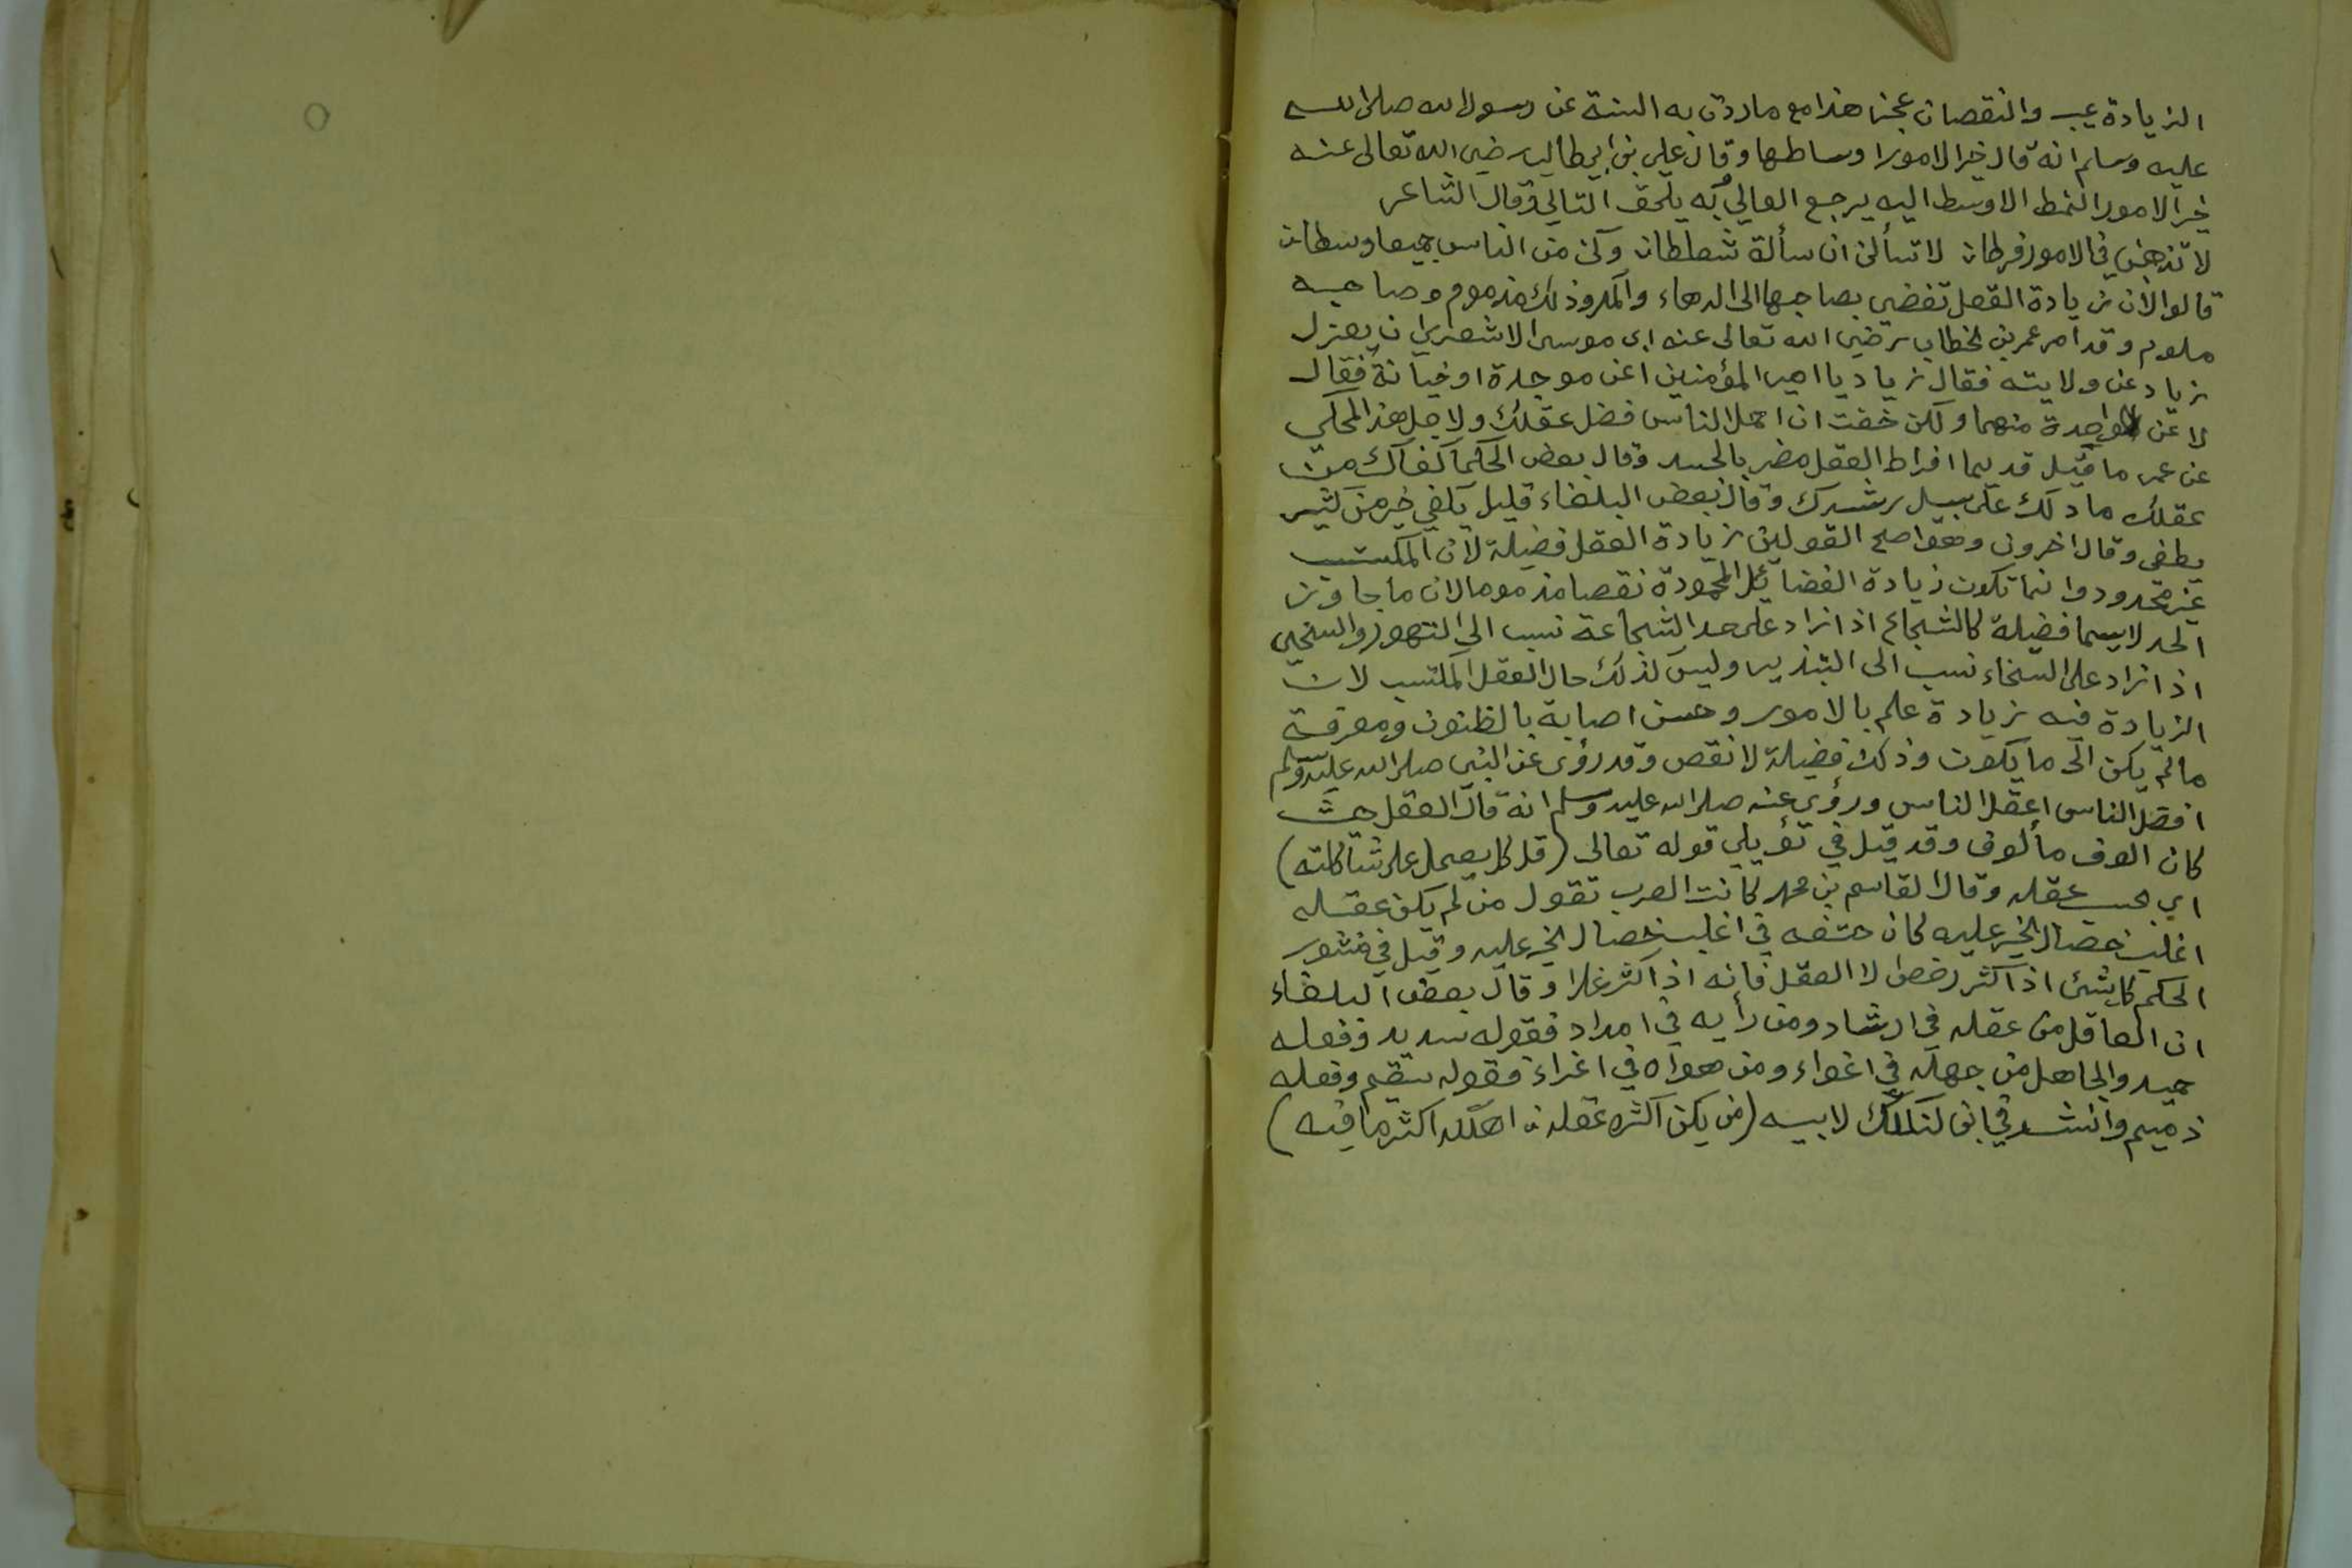 الزيادة عيب والنقصان عجز هذا مع ماردت به السنة عن رسول الله صلى الله
عليه وسلم انه قال خير الامور اوساطها وقال علي بن ابي طالب رضي الله تعالى عنه
خير الامور النمط الاوسط اليه يرجع العالي وبه يلحق التالي وقال الشاعر
لا تذهبن في الامور فرطا لا تسألن ان سألت شططا وكن من الناس جميعا وسطا
قالوا لأن زيادة العقل تفضي بصاحبها الى الدهاء والمكر وذلك مذموم وصاحبه
ملوم وقد امر عمر بن الخطاب رضي الله تعالى عنه ابى موسى الاشعري ان يعزل
زياد عن ولايته فقال زياد يا امير المؤمنين اعن موجدة او خيانة فقال
لا عن واحدة منهما ولكن خفت ان احمل الناس فضل عقلك ولاجل هذا المحكي
عن عمر ما قيل قديما افراط العقل مضر بالجسد وقال بعض الحكما كفاك من
عقلك مادلك على سبيل رشدك وقال بعض البلغاء قليل يكفي خير من كثير
يطغى وقال اخرون وهو اصح القولين زيادة العقل فضيلة لان المكتسب
غير محدود وانما تكون زيادة الفضائل المحمودة نقصا مذموما لان ما جاوز
الحد لا يسما فضيلة كالشجاع اذا زاد على حد الشجاعة نسب الى التهور والسخي
اذا زاد على السخاء نسب الى التبذير وليس كذلك حال العقل المكتسب لان
الزيادة فيه زيادة علم بالامور وحسن اصابة بالظنون ومعرفة
مالم يكن الى ما يكون وذلك فضيلة لا نقص وقد روى عن النبي صلى الله عليه وسلم
افضل الناس اعقل الناس وروي عنه صلى الله عليه وسلم انه قال العقل حيث
كان الوف مألوف وقد قيل في تؤيلي قوله تعالى (قل كل يعمل على شاكلته)
اي حسب عقله وقال القاسم بن محمد كانت العرب تقول من لم يكن عقله
اغلب خصال الخير عليه كان حتفه في اغلب خصال الخير عليه وقيل في منثور
الحكم كل شئ اذا كثر رخص الا العقل فانه اذا كثر غلا وقال بعض البلغاء
ان العاقل من عقله في ارشاد ومن رأيه في امداد فقوله سديد وفعله
حميد والجاهل من جهله في اغواء ومن هواه في اغراء فقوله سقيم وفعله
ذميم وانشد في ابن لنكك لابيه (من يكن اكثره عقله اهلكه اكثر ما فيه)